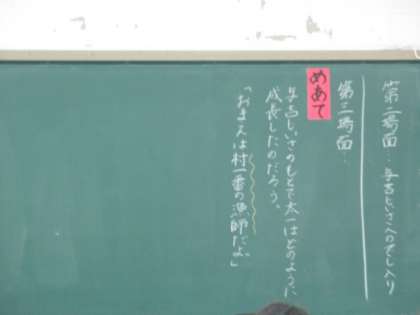 第二場面…与吉じいさへのでし入り
第三場面…
めあて
与吉じいさのもとで太一はどのように
成長したのだろう。
「おまえは村一番の漁師だよ。」